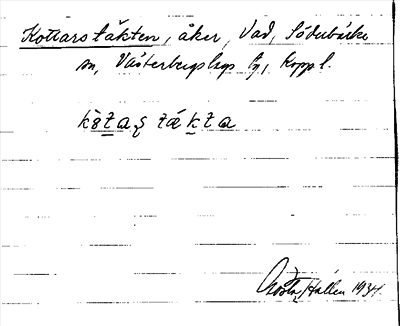 Kottarstäkten, åker, Vad, Söderbärke
sn, Västerbergslags tg, Kopp l.
kòt̠aʂ tä́k̠ta
Gösta Hallén 1934.